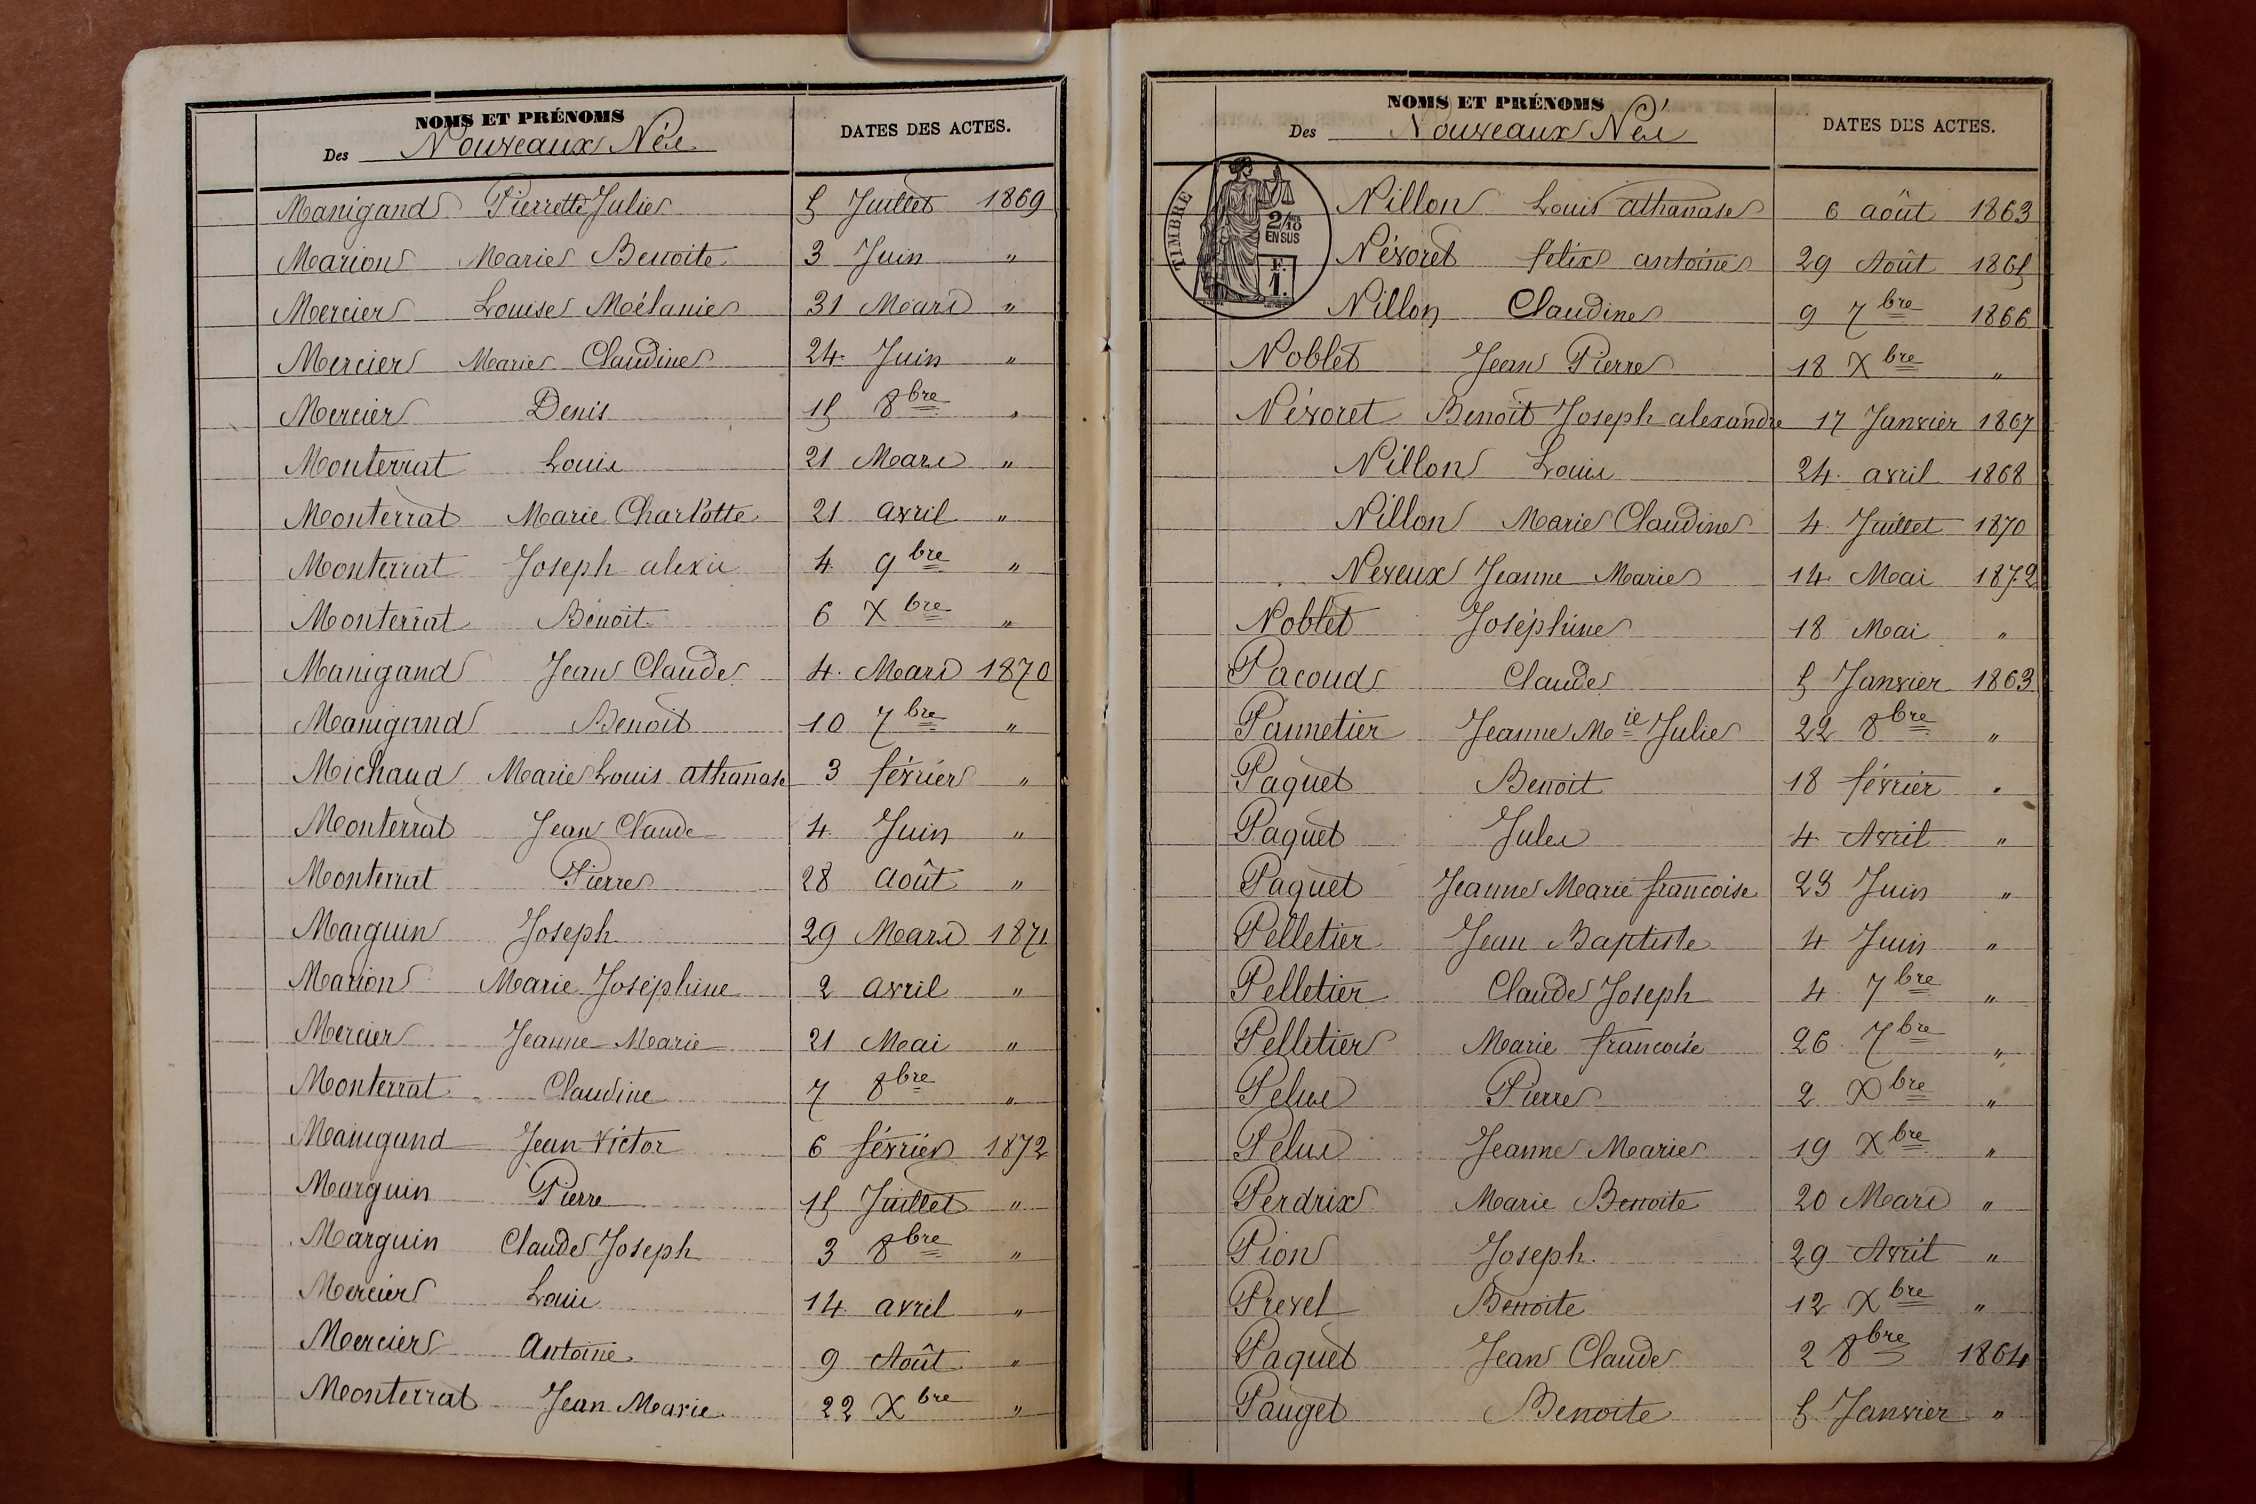 NOMS ET PRÉNOMS
Des Nouveaux Nés
DATES DES ACTES.
Manigand Pierrette Julie 5 Juillet 1869
Marion Marie Benoite 3 Juin "
Mercier Louise Mélanie 31 Mars "
Mercier Marie Claudine 24 Juin "
Mercier Denis 15 8bre "
Monterrat Louis 21 Mars "
Monterrat Marie Charlotte 21 avril "
Monterrat Joseph alexis 4 9bre "
Monterrat Benoit 6 Xbre "
Manigand Jean Claude 4 Mars 1870
Manigand Benoit 10 7bre "
Michaud Marie Louis athanase 3 février "
Monterrat Jean Claude 4 Juin "
Monterrat Pierre 28 août "
Marguin Joseph 29 Mars 1871
Marion Marie Joséphine 2 avril "
Mercier Jeanne Marie 21 Mai "
Monterrat Claudine 7 8bre "
Manigand Jean Victor 6 février 1872
Marguin Pierre 15 Juillet "
Marguin Claude Joseph 3 8bre "
Mercier Louis 14 avril "
Mercier Antoine 9 Août "
Monterrat Jean Marie 22 Xbre "
NOMS ET PRÉNOMS
Des Nouveaux Nés
DATES DES ACTES.
TIMBRE
2/10
EN SUS
F.
1.
Nillon Louis athanase 6 août 1863
Névoret félix antoine 29 Août 1865
Nillon Claudine 9 7bre 1866
Noblet Jean Pierre 18 Xbre "
Névoret Benoit Joseph alexandre 17 Janvier 1867
Nillon Louis 24 avril 1868
Nillon Marie Claudine 4 Juillet 1870
Neveux Jeanne Marie 14 Mai 1872
Noblet Joséphine 18 Mai "
Pacoud Claude 5 Janvier 1863
Pannetier Jeanne Mie Julie 22 8bre "
Paquet Benoit 18 février "
Paquet Jules 4 Avril "
Paquet Jeanne Marie francoise 23 Juin "
Pelletier Jean Baptiste 4 Juin "
Pelletier Claude Joseph 4 7bre "
Pelletier Marie francoise 26 7bre "
Pelus Pierre 2 Xbre "
Pelus Jeanne Marie 19 Xbre "
Perdrix Marie Benoite 20 Mars "
Pion Joseph 29 Avril "
Prevel Benoite 12 Xbre "
Paquet Jean Claude 2 8bre 1864
Pauget Benoite 5 Janvier "